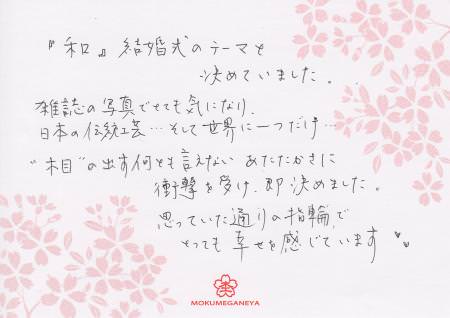 『和』結婚式のテーマと
決めていました。
雑誌の写真でとても気になり、
日本の伝統工芸…そして世界に一つだけ…
"木目"の出す何とも言えないあたたかさに
衝撃を受け、即決めました。
思っていた通りの指輪で
とっても幸せを感じています
MOKUMEGANEYA